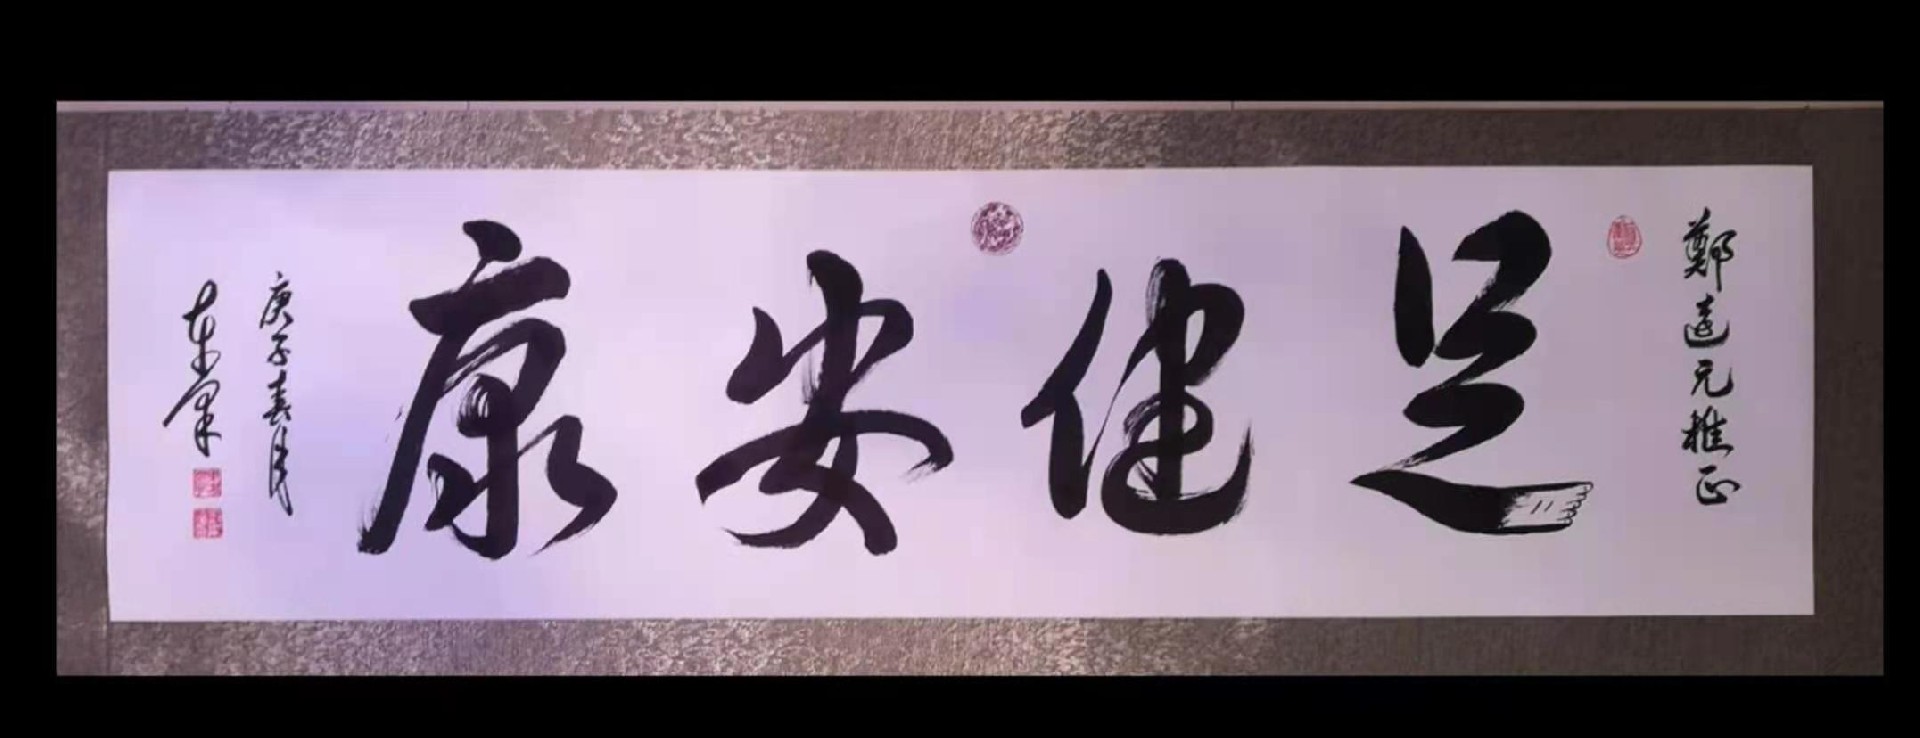 鄭遠元雅正
足健安康
庚子春月